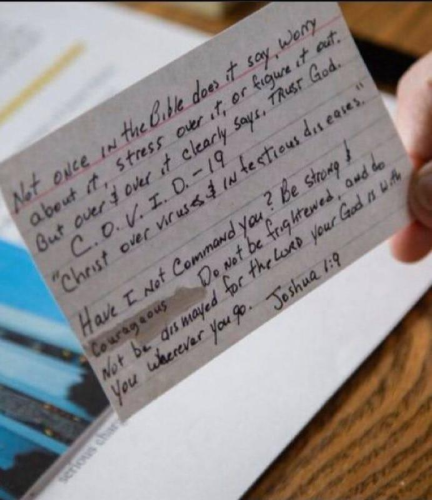 Not once in the Bible does it say, worry
about it, stress over it, or figure it out.
But over & over it clearly says, TRUST God.
C.O.V.I.D.-19
"Christ over viruses & infectious diseases."
Have I Not Command you? Be strong &
Courageous Do Not be frightened, and do
Not be dismayed for the LORD your God is with
you wherever you go. Joshua 1:9
serious char